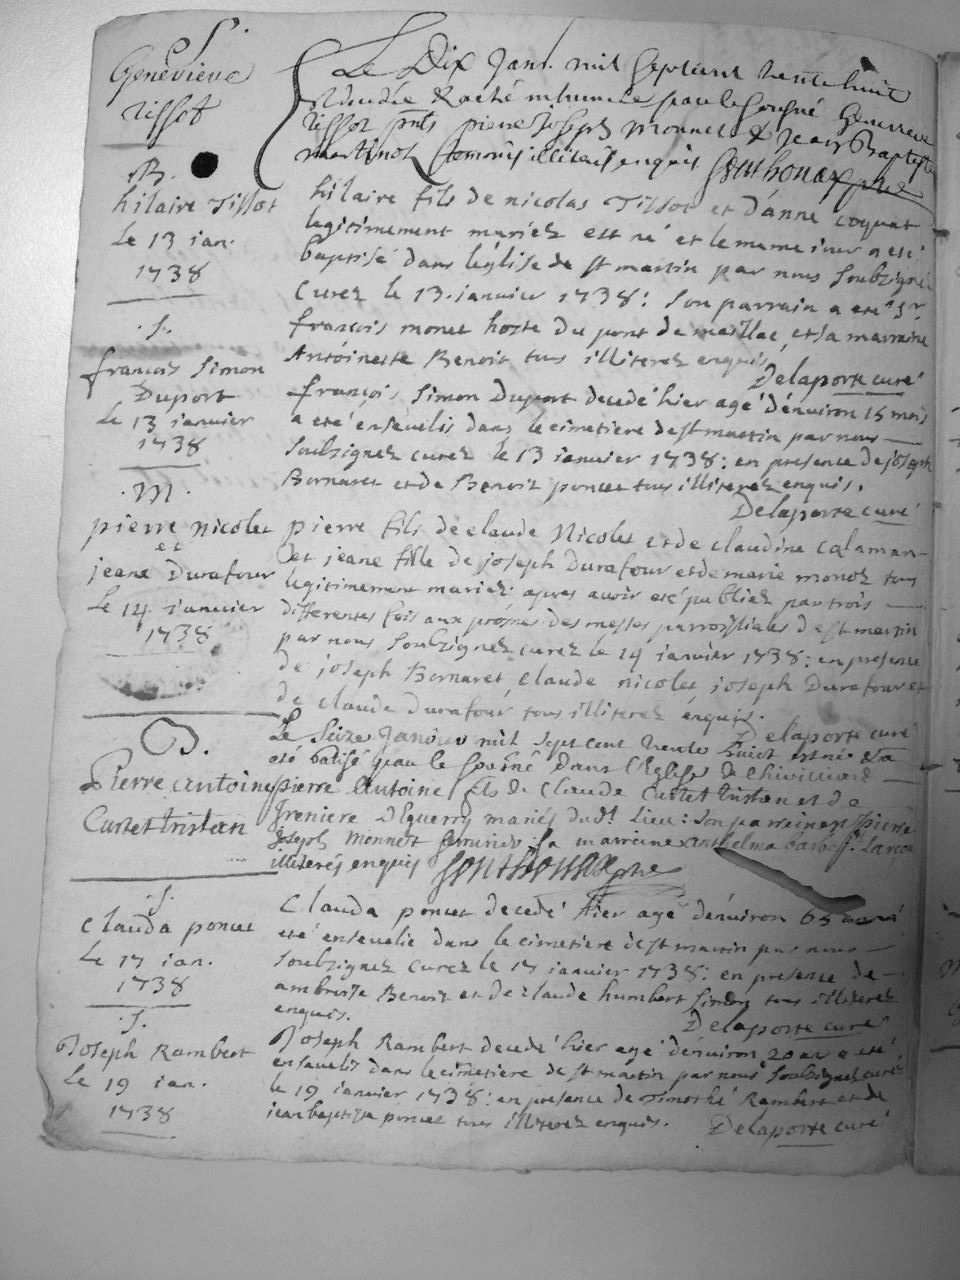 S.
Geneviève
Tissot
Le Dix Janv. mil Sept cent trente huit
décédée & a été inhumée par le sousigné Genevieve
Tissot pnts pierre Joseph Monnet & Jean Baptiste
martinod temoins illiterés enquis Gonthonax ptre
B.
hilaire Tissot
Le 13 ian.
1738
hilaire fils de nicolas Tissot et d'anne coquat
legitimement mariez est né et le meme iour a eté
baptisé dans l'église de st martin par nous soubsigné
curez le 13 ianvier 1738: son parrain a eté sr
francois monet hoste du pont de maillac, et sa marraine
Antoinette Benoit tous illiterez enquis
Delaporte curé
.S.
francois simon
Duport
Le 13 ianvier
1738
francois simon Duport decedé hier agé d'enuiron 15 mois
a eté enseuelis dans le cimetiere de st martin par nous
soubsignez curez le 13 ianvier 1738: en presence de joseph
Bornaret et de Benoit poncet tous illiterez enquis.
Delaporte curé
.M.
pierre nicolet
et
jeane Durafour
Le 14 ianvier
1738
pierre fils de claude Nicolet et de claudine calaman
et jeane fille de joseph Durafour et de marie monoz tous
legitimement mariez: apres avoir eté publiez par trois
differentes fois aux prosnes des messes parroissiales de st martin
par nous soubsignez curez le 14 ianvier 1738: en presence
de joseph Bornaret, claude nicolet joseph Durafour et
de claude Durafour, tous illiterez enquis.
Delaporte curé
B.
Pierre antoine
Curtet tristan
Le seize Janvier mil sept cent trente huict est né & a
été batisé par le sousiné dans l'Eglise de Chivilliard
pierre Antoine fils de Claude Curtet tristan et de
Jreniere DEguerry mariés dudt Lieu: son parrein est pierre
joseph Monnet sa marreine anthelma
illiterés enquis Gonthonax ptre
.S.
Clauda poncet
Le 17 ian.
1738
Clauda poncet decedé hier agé d'enuiron 65 a
eté enseuelie dans le cimetiere de st martin par nous
soubsignez curez le 17 ianvier 1738: en presence de
ambroise Benoit et de claude humbert tous illiterez
enquis.
Delaporte curé
.S.
Joseph Rambert
Le 19 ian.
1738
Joseph Rambert decedé hier agé d'enuiron 20 an a eté
enseuelis dans le cimetiere de st martin par nous soubsignez curez
le 19 ianvier 1738: en presence de Timothé Rambert et de
jean baptiste poncet tous illiterez enquis.
Delaporte curé